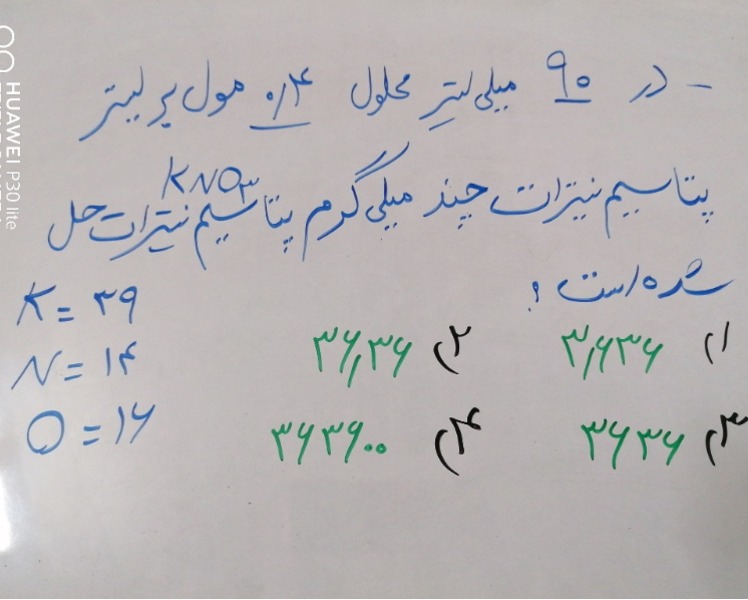 - در ۹۰ میلی لیترِ محلول ۰٫۴ مول بر لیتر
پتاسیم نیترات چند میلی گرم پتاسیم نیترات حل
KNO۳
شده است ؟
K = ۳۹
N = ۱۴
O = ۱۶
۱) ۳٫۶۳۶
۲) ۳۶٫۳۶
۳) ۳۶۳۶
۴) ۳۶۳۶۰۰
HUAWEI P30 lite